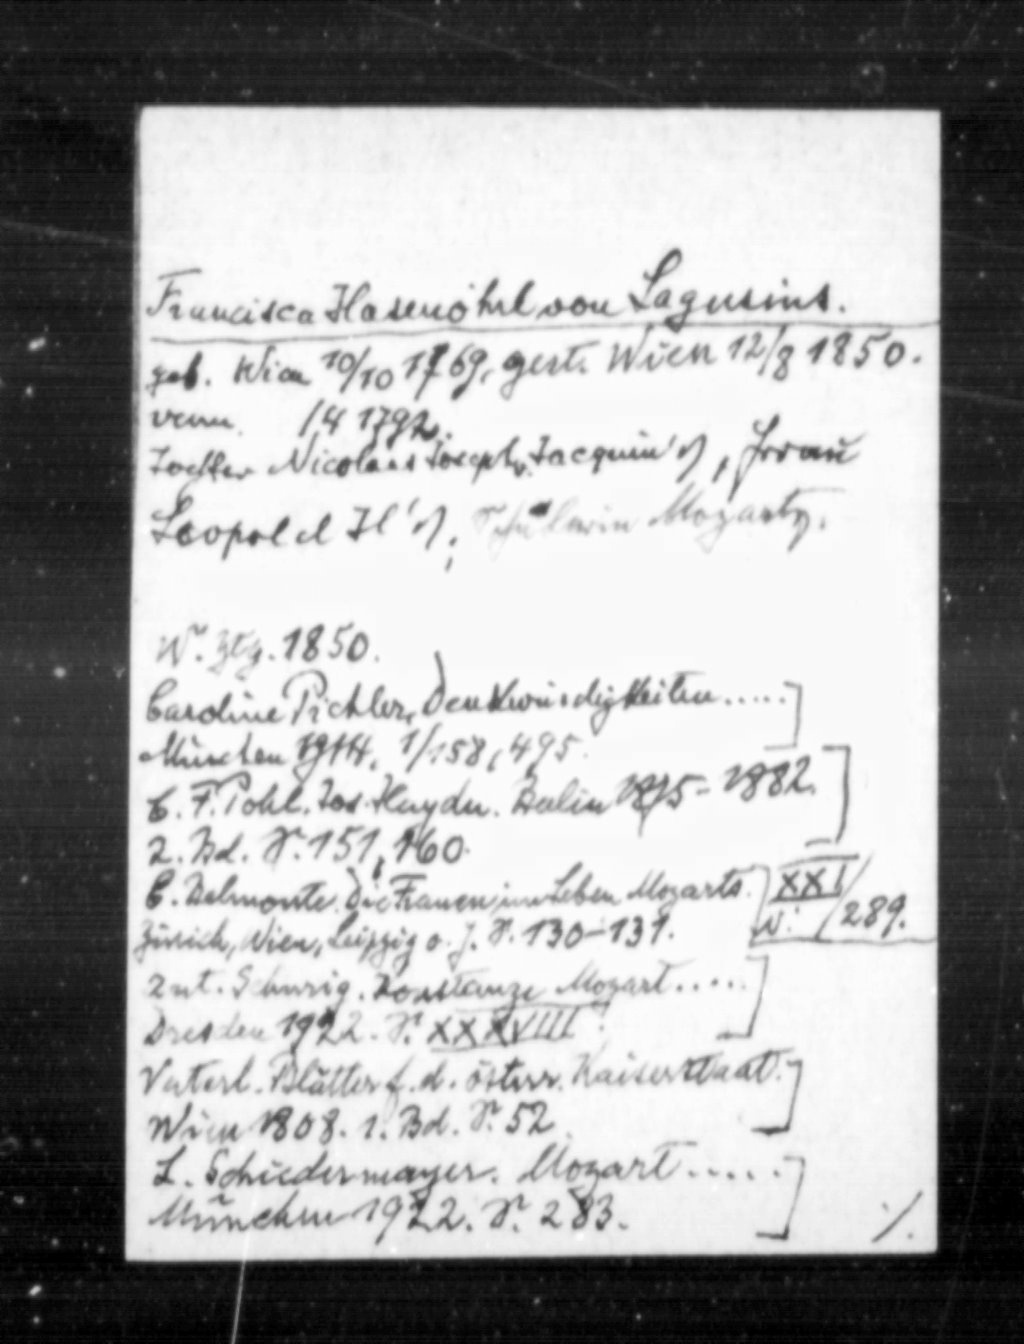 Francisca Hasenöhrl von Lagusius.
geb. Wien 10/10 1769, gest. Wien 12/8 1850.
verm. /4 1792.
Tochter Nicolaus Joseph v. Jacquin's, Frau
Leopold H's; Schülerin Mozarts.
W. Ztg. 1850.
Caroline Pichler, Denkwürdigkeiten.....]
München 1914, 1/158, 495.
C. F. Pohl. Jos. Haydn. Berlin 1875-1882.]
2. Bd. S. 151, 160.
C. Belmonte. Die Frauen im Leben Mozarts.
Zürich, Wien, Leipzig o. J. S. 130-131.] XXI/289.
Art. Schurig. Konstanze Mozart.....
Dresden 1922. S. XXXVIII.]
Vaterl. Blätter f. d. österr. Kaiserstaat.
Wien 1808. 1. Bd. S. 52.]
L. Schiedermayer. Mozart.....
München 1922. S. 283.] ./.